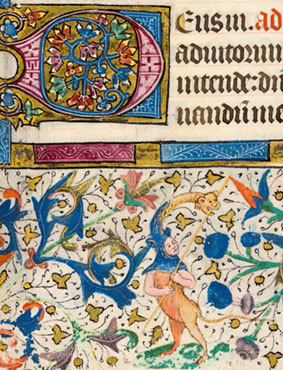 DEusin. ad
adiutoriu
intende: dn
uandū me